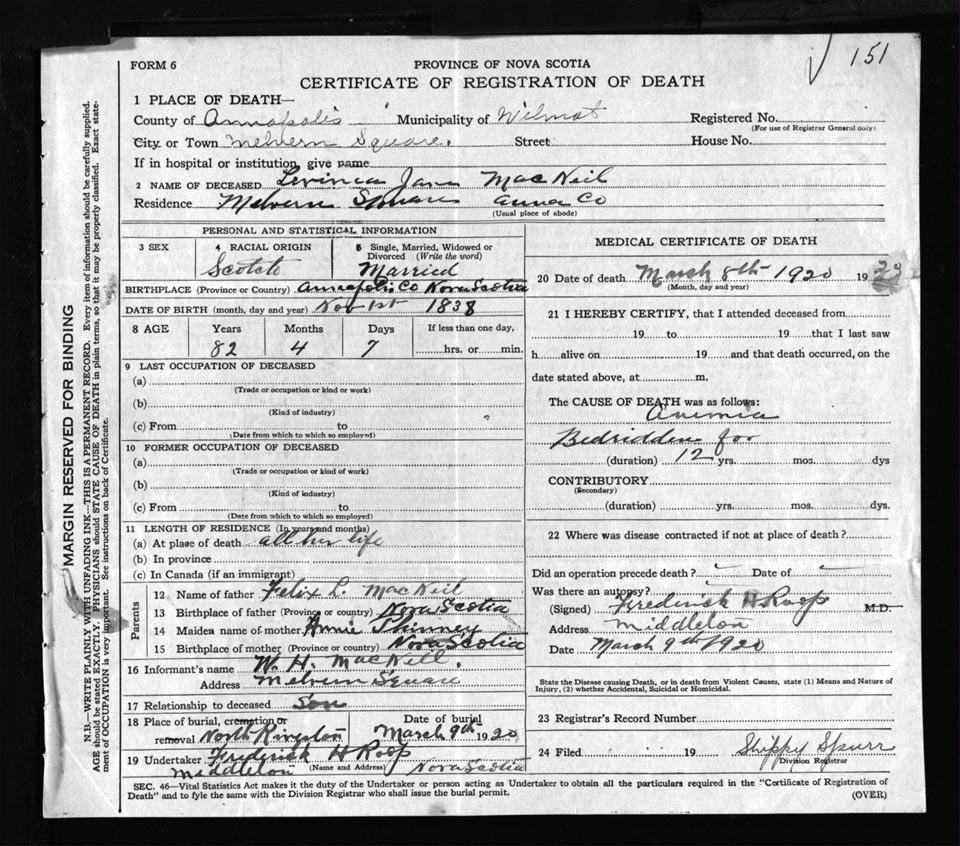 151
FORM 6
PROVINCE OF NOVA SCOTIA
CERTIFICATE OF REGISTRATION OF DEATH
1 PLACE OF DEATH—
County of Annapolis Municipality of Wilmot Registered No.
(For use of Registrar General only)
City or Town Melvern Square. Street House No.
If in hospital or institution, give name
2 NAME OF DECEASED Levinia Jane MacNeil
Residence Melvern Square Anna Co
(Usual place of abode)
PERSONAL AND STATISTICAL INFORMATION
3 SEX
4 RACIAL ORIGIN
Scotch
5 Single, Married, Widowed or Divorced (Write the word)
Married
BIRTHPLACE (Province or Country) Annapolis Co Nova Scotia
DATE OF BIRTH (month, day and year) Nov 1st 1838
8 AGE Years Months Days If less than one day,
82 4 7 hrs. or min.
9 LAST OCCUPATION OF DECEASED
(a)
(Trade or occupation or kind or work)
(b)
(Kind of industry)
(c) From to
(Date from which to which so employed)
10 FORMER OCCUPATION OF DECEASED
(a)
(Trade or occupation or kind of work)
(b)
(Kind of industry)
(c) From to
(Date from which to which so employed)
11 LENGTH OF RESIDENCE (In years and months)
(a) At place of death all her life
(b) In province
(c) In Canada (if an immigrant)
Parents
12 Name of father Felix L. MacNeil
13 Birthplace of father (Province or country) Nova Scotia
14 Maiden name of mother Annie Phinney
15 Birthplace of mother (Province or country) Nova Scotia
16 Informant's name W. H. MacNeill.
Address Melvern Square
17 Relationship to deceased Son
18 Place of burial, cremation or Date of burial
removal North Kingston March 9th 1920
19 Undertaker Frederick H Roop
Middleton (Name and Address) Nova Scotia
MEDICAL CERTIFICATE OF DEATH
20 Date of death March 8th 1920 19
(Month, day and year)
21 I HEREBY CERTIFY, that I attended deceased from
19 to 19 that I last saw
h alive on 19 and that death occurred, on the
date stated above, at m.
The CAUSE OF DEATH was as follows:
Anemia
Bedridden for
(duration) 12 yrs. mos. dys
CONTRIBUTORY
(Secondary)
(duration) yrs. mos. dys.
22 Where was disease contracted if not at place of death?
Did an operation precede death? Date of
Was there an autopsy?
(Signed) Frederick H Roop M.D.
Address Middleton
Date March 9th 1920
State the Disease causing Death, or in death from Violent Causes, state (1) Means and Nature of
Injury, (2) whether Accidental, Suicidal or Homicidal.
23 Registrar's Record Number
24 Filed 19 Shippy Spurr
Division Registrar
SEC. 46—Vital Statistics Act makes it the duty of the Undertaker or person acting as Undertaker to obtain all the particulars required in the "Certificate of Registration of
Death" and to fyle the same with the Division Registrar who shall issue the burial permit.
(OVER)
MARGIN RESERVED FOR BINDING
N.B.—WRITE PLAINLY WITH UNFADING INK—THIS IS A PERMANENT RECORD. Every item of information should be carefully supplied.
AGE should be stated EXACTLY. PHYSICIANS should STATE CAUSE OF DEATH in plain terms, so that it may be properly classified. Exact state-
ment of OCCUPATION is very important. See instructions on back of Certificate.